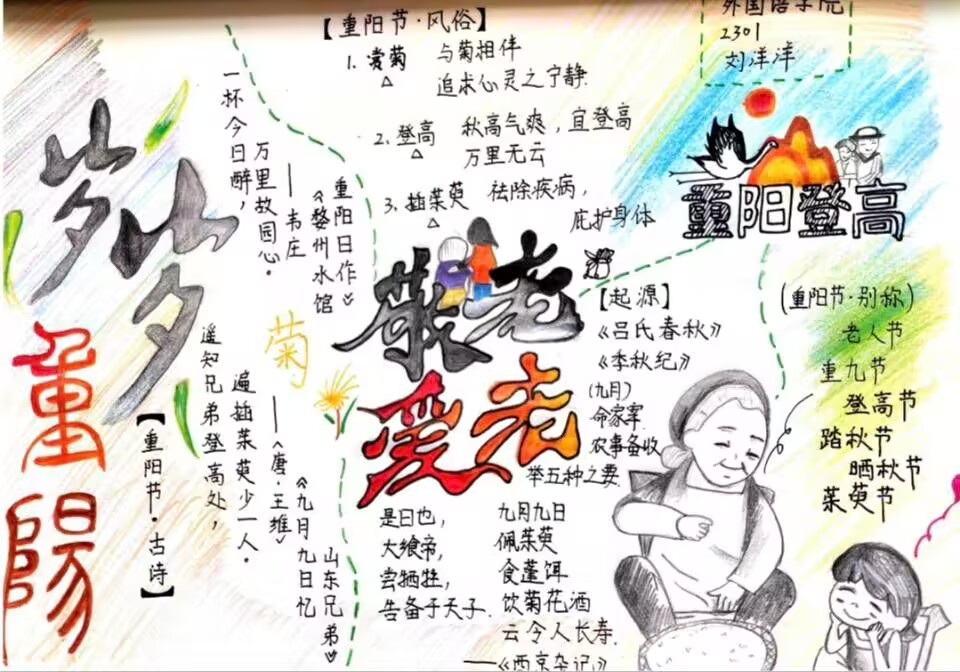 岁岁
重陽
【重阳节·古诗】
一杯今日醉，
万里故园心。
——韦庄
《婺州水馆
重阳日作》
遥知兄弟登高处，
遍插茱萸少一人。
——《唐·王维》
《九月九日忆
山东兄弟》
菊
【重阳节·风俗】
1. 赏菊 与菊相伴
追求心灵之宁静.
2. 登高 秋高气爽，宜登高
万里无云
3. 插茱萸 祛除疾病，
庇护身体
敬老
爱老
外国语学院
2301
刘洋洋
重阳登高
【起源】
《吕氏春秋》
《季秋纪》
(九月)
命家宰
农事备收
举五种之要
是日也，
大飨帝，
尝牺牲，
告备于天子.
九月九日
佩茱萸
食蓬饵
饮菊花酒
云令人长寿.
——《西京杂记》
(重阳节·别称)
老人节
重九节
登高节
踏秋节
晒秋节
茱萸节